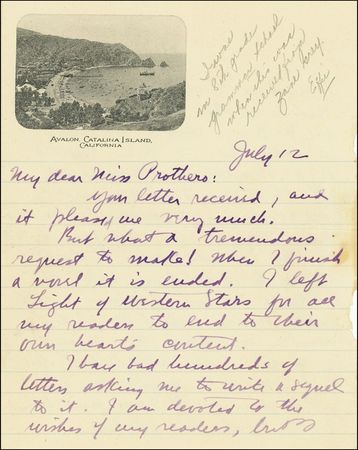 AVALON, CATALINA ISLAND,
CALIFORNIA
I was
in 8th grade
grammar school
when this was
received from
Zane Grey.
Effie
July 12
My dear Miss Prothero:
Your letter received, and
it pleased me very much.
But what a tremendous
request to make! When I finish
a novel it is ended. I left
Light of Western Stars for all
my readers to end to their
own heart's content.
I have had hundreds of
letters asking me to write a sequel
to it. I am devoted to the
wishes of my readers, but